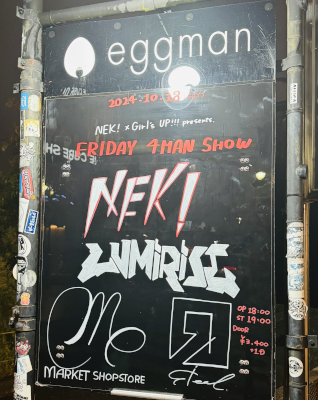 eggman
2024.10.18
NEK! × Girl's UP!!! presents.
FRIDAY 4MAN SHOW
NEK!
LUMiRiSE
MARKET SHOPSTORE
OP 18:00
ST 19:00
DOOR
¥3,400
+1D